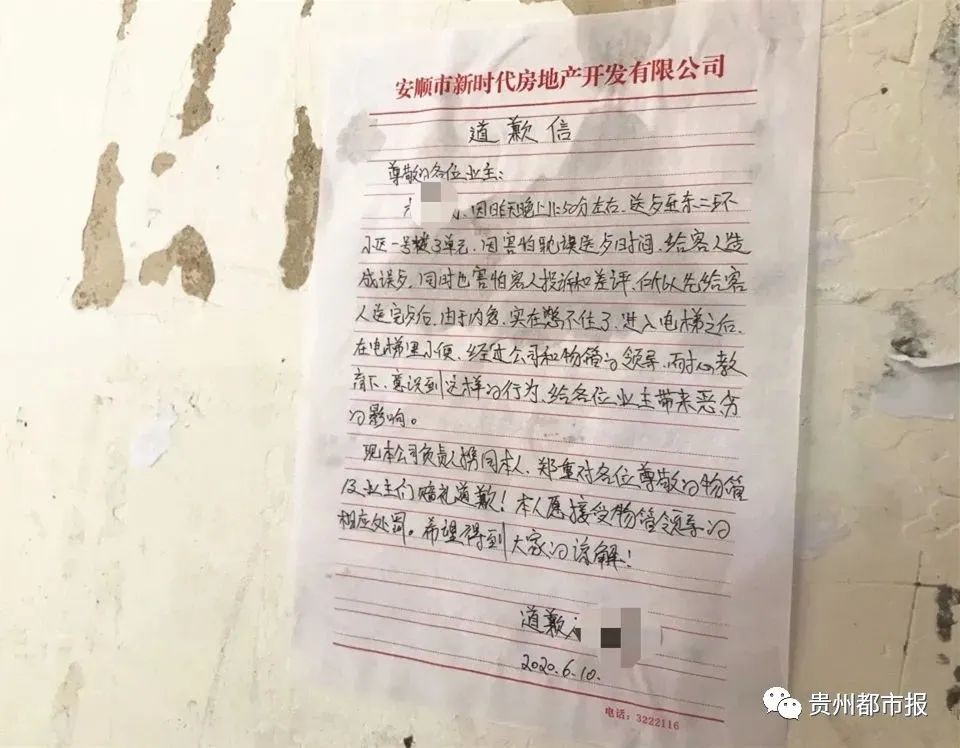 安顺市新时代房地产开发有限公司
道歉信
尊敬的各位业主：
因昨天晚上11:50分左右、送歺至东二环
小区一号楼3单元、因害怕耽误送歺时间、给客人造
成误歺、同时也害怕客人投诉和差评、所以先给客
人送完歺后、由于内急、实在憋不住了、进入电梯之后、
在电梯里小便、经过公司和物管的领导、耐心教
育下、意识到这样的行为、给各位业主带来恶劣
的影响。
现本公司负责人携同本人、郑重对各位尊敬的物管
及业主们赔礼道歉！本人愿接受物管领导的
相应处罚。希望得到大家的谅解！
道歉
2020.6.10.
电话：3222116
贵州都市报